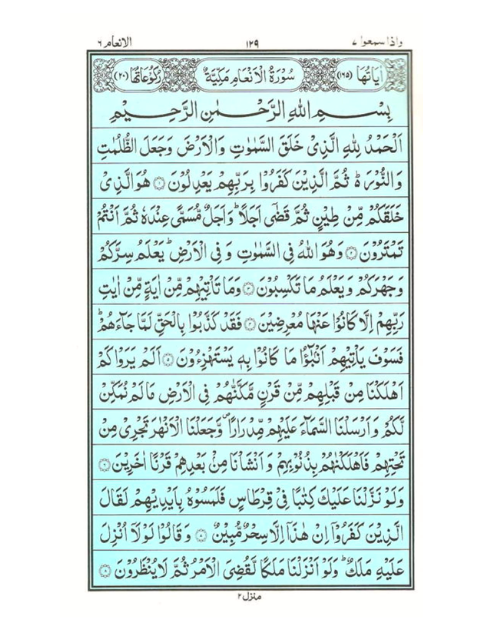 واذا سمعوا ٧ ١٢٩ الانعام ٦
اٰيَاتُهَا (١٦٥) سُوْرَةُ الْاَنْعَامِ مَكِّيَّةٌ رُكُوْعَاتُهَا (٢٠)
بِسْمِ اللهِ الرَّحْمٰنِ الرَّحِيْمِ
اَلْحَمْدُ لِلّٰهِ الَّذِيْ خَلَقَ السَّمٰوٰتِ وَالْاَرْضَ وَجَعَلَ الظُّلُمٰتِ
وَالنُّوْرَ ۬ؕ ثُمَّ الَّذِيْنَ كَفَرُوْا بِرَبِّهِمْ يَعْدِلُوْنَ ۝ هُوَ الَّذِيْ
خَلَقَكُمْ مِّنْ طِيْنٍ ثُمَّ قَضٰۤى اَجَلًا ؕ وَاَجَلٌ مُّسَمًّى عِنْدَهٗ ثُمَّ اَنْتُمْ
تَمْتَرُوْنَ ۝ وَهُوَ اللهُ فِي السَّمٰوٰتِ وَفِي الْاَرْضِ ؕ يَعْلَمُ سِرَّكُمْ
وَجَهْرَكُمْ وَيَعْلَمُ مَا تَكْسِبُوْنَ ۝ وَمَا تَاْتِيْهِمْ مِّنْ اٰيَةٍ مِّنْ اٰيٰتِ
رَبِّهِمْ اِلَّا كَانُوْا عَنْهَا مُعْرِضِيْنَ ۝ فَقَدْ كَذَّبُوْا بِالْحَقِّ لَمَّا جَآءَهُمْ ؕ
فَسَوْفَ يَاْتِيْهِمْ اَنْۢبٰٓؤُا مَا كَانُوْا بِهٖ يَسْتَهْزِءُوْنَ ۝ اَلَمْ يَرَوْا كَمْ
اَهْلَكْنَا مِنْ قَبْلِهِمْ مِّنْ قَرْنٍ مَّكَّنّٰهُمْ فِي الْاَرْضِ مَا لَمْ نُمَكِّنْ
لَّكُمْ وَاَرْسَلْنَا السَّمَآءَ عَلَيْهِمْ مِّدْرَارًا ۪ وَّجَعَلْنَا الْاَنْهٰرَ تَجْرِيْ مِنْ
تَحْتِهِمْ فَاَهْلَكْنٰهُمْ بِذُنُوْبِهِمْ وَاَنْشَاْنَا مِنْۢ بَعْدِهِمْ قَرْنًا اٰخَرِيْنَ ۝
وَلَوْ نَزَّلْنَا عَلَيْكَ كِتٰبًا فِيْ قِرْطَاسٍ فَلَمَسُوْهُ بِاَيْدِيْهِمْ لَقَالَ
الَّذِيْنَ كَفَرُوْۤا اِنْ هٰذَاۤ اِلَّا سِحْرٌ مُّبِيْنٌ ۝ وَقَالُوْا لَوْلَاۤ اُنْزِلَ
عَلَيْهِ مَلَكٌ ؕ وَلَوْ اَنْزَلْنَا مَلَكًا لَّقُضِيَ الْاَمْرُ ثُمَّ لَا يُنْظَرُوْنَ ۝
منزل ٢